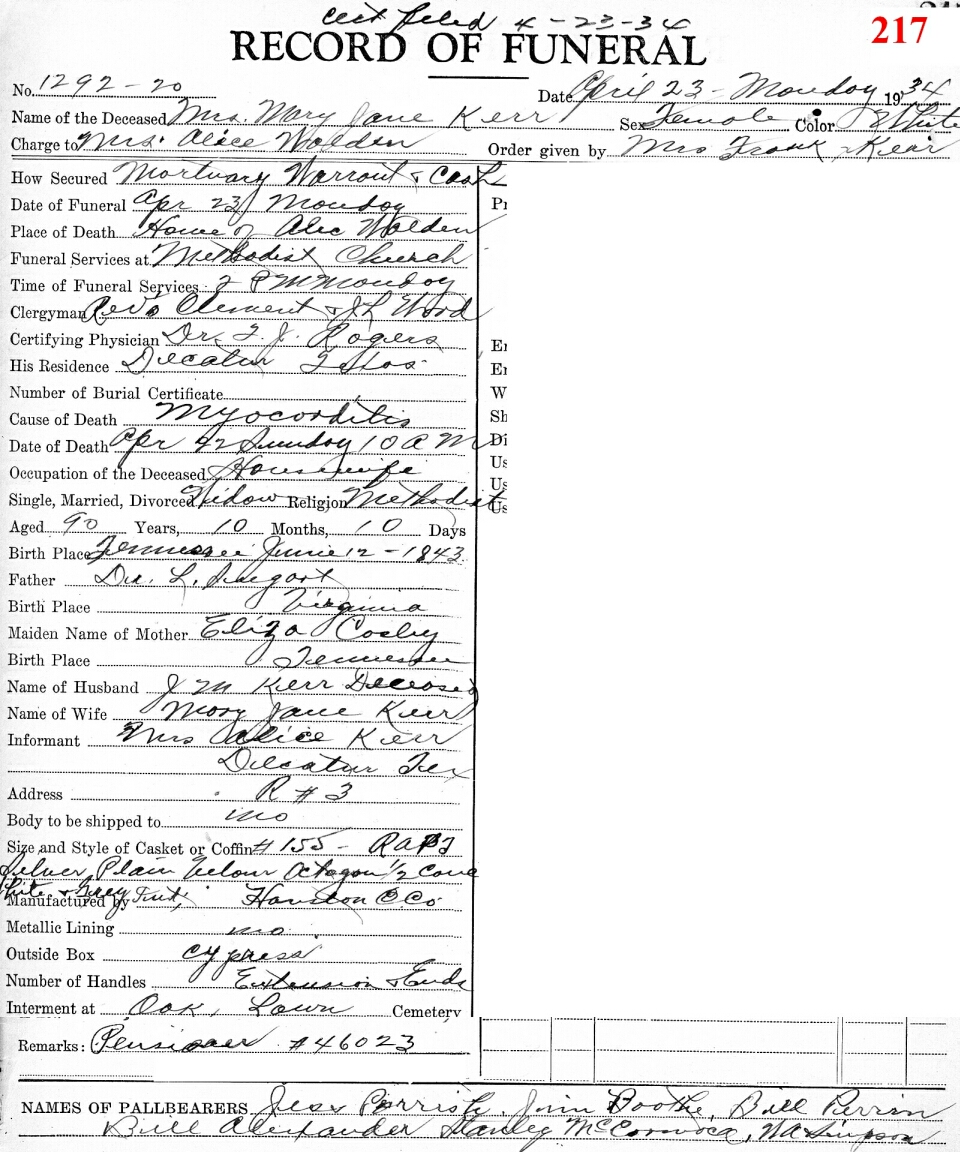 Cert filed 4-23-34
217
RECORD OF FUNERAL
No. 1292-20 Date April 23 - Monday 1934
Name of the Deceased Mrs. Mary Jane Kerr Sex Female Color White
Charge to Mrs. Alice Walden Order given by Mrs Frank Kerr
How Secured Mortuary Warrant & Cash
Date of Funeral Apr 23 Monday Pr
Place of Death Home of Alec Walden
Funeral Services at Methodist Church
Time of Funeral Services 2 PM Monday
Clergyman Revs Clement & J L Wood
Certifying Physician Dr. T. J. Rogers En
His Residence Decatur Texas En
Number of Burial Certificate W
Cause of Death Myocorditis Sh
Date of Death Apr 22 Sunday 10 A M Di
Occupation of the Deceased Housewife Us
Single, Married, Divorced Widow Religion Methodist Us
Aged 90 Years, 10 Months, 10 Days
Birth Place Tennessee June 12 - 1843
Father Dr. L.
Birth Place Virginia
Maiden Name of Mother Eliza Cosby
Birth Place Tennessee
Name of Husband J M Kerr Deceased
Name of Wife Mary Jane Kerr
Informant Mrs Alice Kerr
Decatur Tex
Address R # 3
Body to be shipped to no
Size and Style of Casket or Coffin # 155 -
Silver Plain Velour Octagon 1/2 Couc
White & Grey Tint,
Manufactured by Houston C Co
Metallic Lining no.
Outside Box cypress
Number of Handles Extension Ends
Interment at Oak Lawn Cemetery
Remarks: Pensioner #46023
NAMES OF PALLBEARERS Jess Parrish, Jim Boothe, Bill Perrin
Bill Alexander Stanley McCormick, WA Simpson